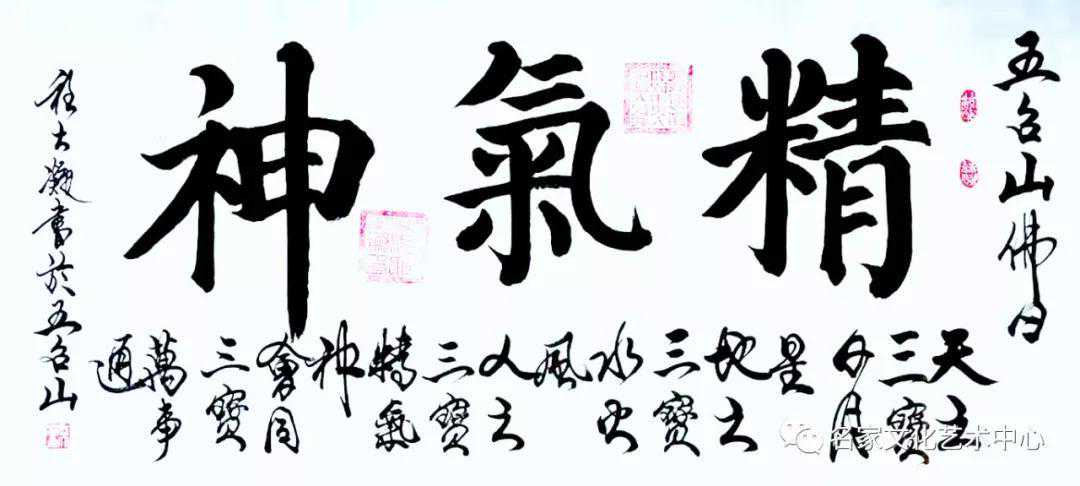 五台山佛曰
精氣神
天之
三寶
日月
星
地之
三寶
水火
風
人之
三寶
精氣
神
會用
三寶
萬事
通
大凝書於五台山
名家文化艺术中心